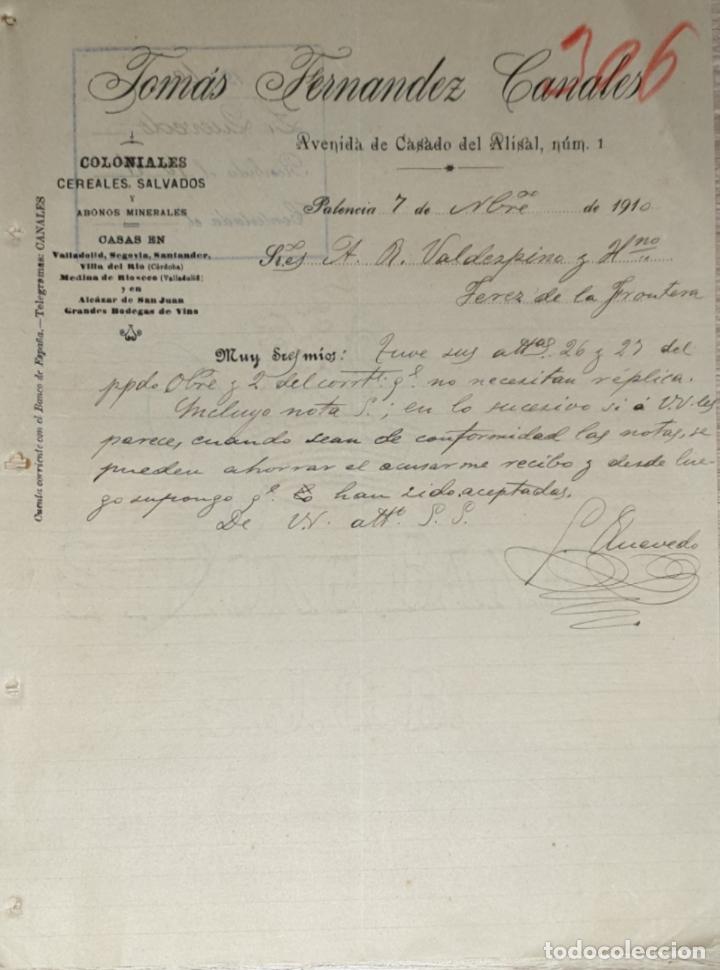 306
Tomás Fernandez Canales
Avenida de Casado del Alisal, núm. 1
COLONIALES
CEREALES, SALVADOS
Y
ABONOS MINERALES
CASAS EN
Valladolid, Segovia, Santander,
Villa del Rio (Córdoba)
Medina de Rioseco (Valladolid)
y en
Alcázar de San Juan
Grandes Bodegas de Vino
Cuenta corriente con el Banco de España.—Telegramas: CANALES
Palencia 7 de Nbre de 1910
Sres A. R. Valdespino y Hno
Jerez de la Frontera
Muy Sres mios: Tuve sus attas. 26 y 27 del
ppdo Obre y 2 del corrte. qe. no necesitan réplica.
Incluyo nota S.; en lo sucesivo si á V.V. les
parece, cuando sean de conformidad las notas, se
pueden ahorrar el acusarme recibo y desde lue-
go supongo qe. han sido aceptadas.
De V.V. atto. S. S.
Quevedo
todocoleccion
todocoleccion.net